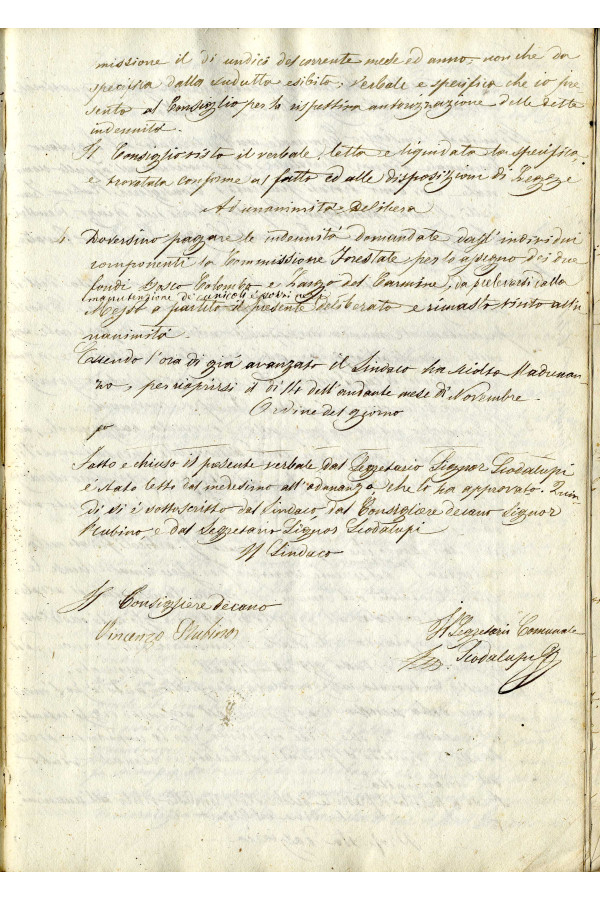 missione il dì undici del corrente mese ed anno, non che da
specifica dalla sudetta esibito, verbale e specifica che io pre
sento al Consiglio per la rispettiva autorizzazione delle dette
indennità.
Il Consiglio visto il verbale, letta e liquidata la specifica,
e trovatala conforme al fatto ed alle disposizioni di Legge
Ad unanimità delibera
Doversino pagare le indennità domandate dagl'individui
componenti la Commissione Forestale per lo assegno dei due
fondi Bosco Colombo e Largo del Carmine, da prelevarsi dalla
manutenzione di
Messo a partito il presente deliberato è rimasto vinto all'u
nanimità.
Essendo l'ora di già avanzato il Sindaco ha sciolto l'adunan-
za, per riaprirsi il dì 14 dell'andante mese di Novembre.
Ordine del giorno
Fatto e chiuso il presente verbale dal Segretario Signor Scodalupi
è stato letto dal medesimo all'adunanza che lo ha approvato. Quin-
di si è sottoscritto dal Sindaco dal Consigliere decano Signor
Rubino, e dal Segretario Signor Scodalupi
Il Sindaco
Il Consigliere decano
Vincenzo Rubino
Il Segretario Comunale
Scodalupi